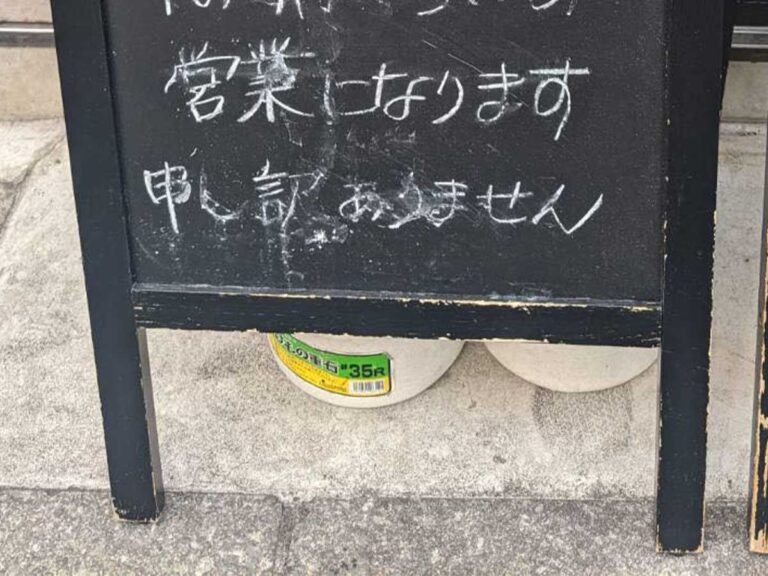 営業になります
申し訳ありません
もの重石 #35R